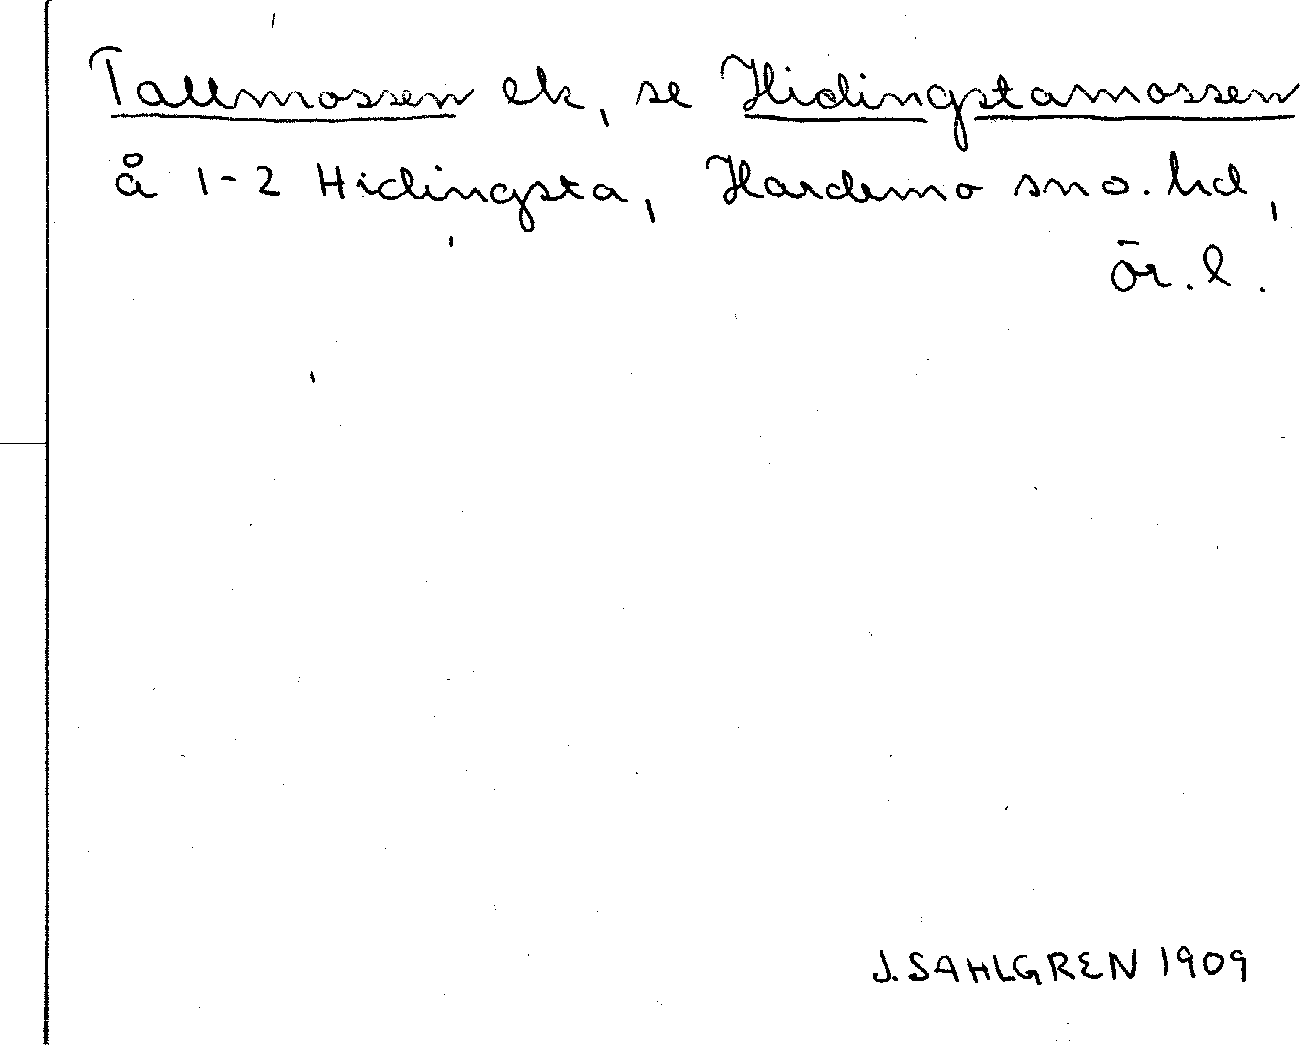 Tallmossen ek, se Hidingstamossen
å 1-2 Hidingsta, Hardemo sn o. hd,
ör. l.
J. SAHLGREN 1909